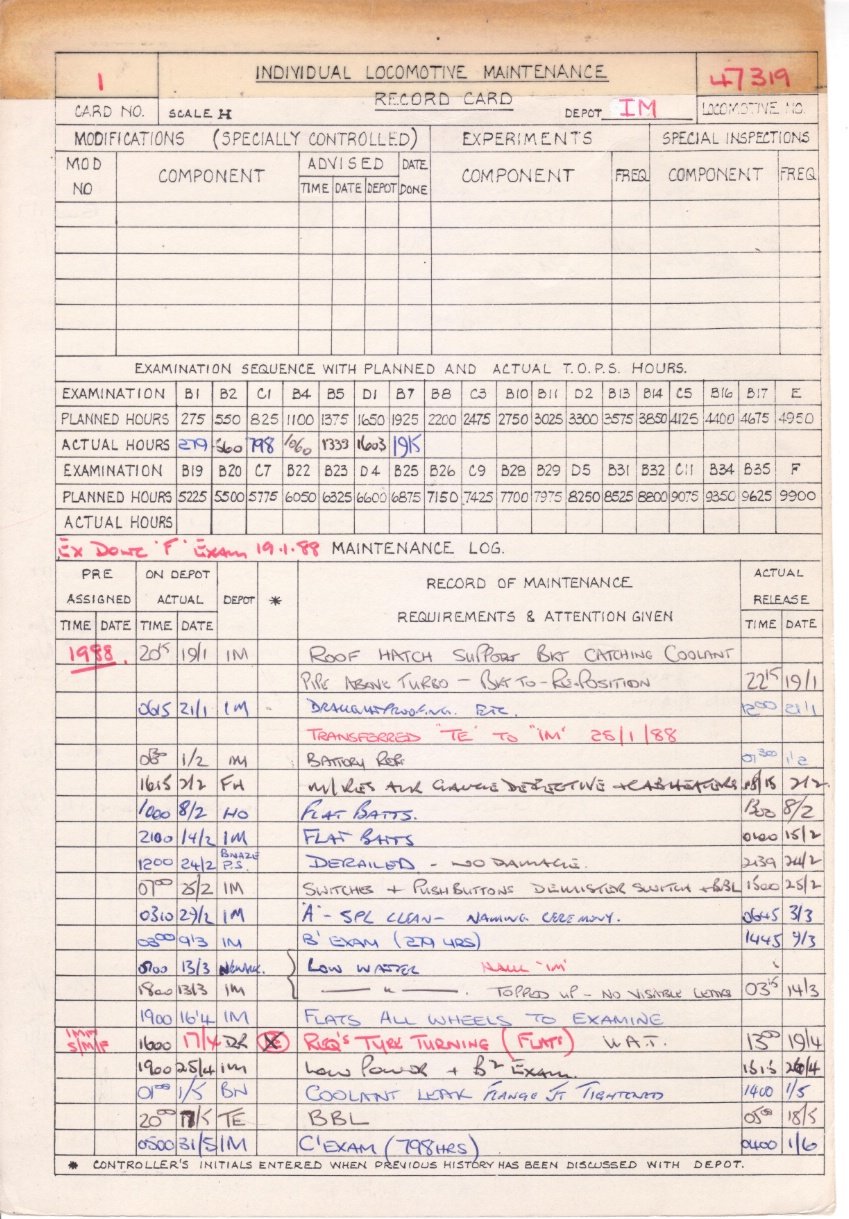 1 INDIVIDUAL LOCOMOTIVE MAINTENANCE 47319
RECORD CARD
CARD NO. SCALE H DEPOT IM LOCOMOTIVE NO.
MODIFICATIONS (SPECIALLY CONTROLLED) EXPERIMENTS SPECIAL INSPECTIONS
MOD NO COMPONENT ADVISED DATE DONE COMPONENT FREQ COMPONENT FREQ.
TIME DATE DEPOT
EXAMINATION SEQUENCE WITH PLANNED AND ACTUAL T.O.P.S. HOURS.
EXAMINATION B1 B2 C1 B4 B5 D1 B7 B8 C3 B10 B11 D2 B13 B14 C5 B16 B17 E
PLANNED HOURS 275 550 825 1100 1375 1650 1925 2200 2475 2750 3025 3300 3575 3850 4125 4400 4675 4950
ACTUAL HOURS 279 560 798 1060 1339 1603 1915
EXAMINATION B19 B20 C7 B22 B23 D4 B25 B26 C9 B28 B29 D5 B31 B32 C11 B34 B35 F
PLANNED HOURS 5225 5500 5775 6050 6325 6600 6875 7150 7425 7700 7975 8250 8525 8800 9075 9350 9625 9900
ACTUAL HOURS
Ex Donc 'F' Exam 19.1.88 MAINTENANCE LOG.
PRE ASSIGNED ON DEPOT ACTUAL DEPOT * RECORD OF MAINTENANCE REQUIREMENTS & ATTENTION GIVEN ACTUAL RELEASE
TIME DATE TIME DATE TIME DATE
1988. 2015 19/1 IM ROOF HATCH SUPPORT BKT CATCHING COOLANT
PIPE ABOVE TURBO - BKT TO-RE-POSITION 2215 19/1
0615 21/1 IM DRAUGHTPROOFING. ETC. 1200 21/1
TRANSFERRED "TE" TO "IM" 25/1/88
1/2 IM BATTERY 1/2
1615 2/2 FH M/RES AIR GAUGE DEFECTIVE + CAB HEATERS 2/2
1000 8/2 HO FLAT BATTS. 8/2
2100 14/2 IM FLAT BATTS 15/2
1200 24/2 P.S. DERAILED - NO DAMAGE. 2139 24/2
0700 25/2 IM SWITCHES + PUSHBUTTONS DEMISTER SWITCH + BBL 1500 25/2
0310 29/2 IM 'A' - SPL CLEAN - NAMING CEREMONY. 0645 3/3
0300 9/3 IM B' EXAM (279 HRS) 1445 9/3
0700 13/3 NEWARK. LOW WATER "IM"
1800 13/3 IM — " — . TOPPED UP - NO VISIBLE LEAKS 0315 14/3
1900 16/4 IM FLATS ALL WHEELS TO EXAMINE
IMM S/M/F 1600 17/4 DR REQ'S TYRE TURNING (FLATS) W.A.T. 1300 19/4
1900 25/4 IM LOW POWER + B2 EXAM. 1515 26/4
0100 1/5 BN COOLANT LEAK FLANGE JT TIGHTENED 1400 1/5
2000 17/5 TE BBL 0500 18/5
0500 31/5 IM C' EXAM (798HRS) 0400 1/6
* CONTROLLER'S INITIALS ENTERED WHEN PREVIOUS HISTORY HAS BEEN DISCUSSED WITH DEPOT.